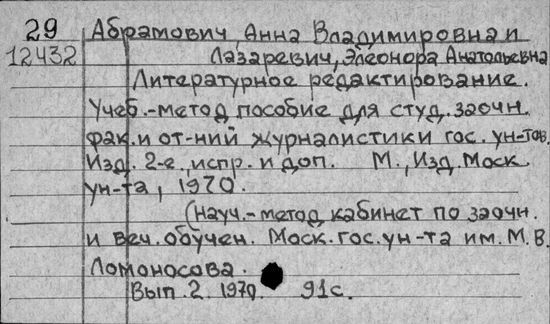 29 Абрамович, Анна Владимировна и
12432 Лазаревич, Элеонора Анатольевна
Литературное редактирование.
Учеб.-метод пособие для студ. заочн.
фак. и от-ний журналистики гос. ун-тов.
Изд. 2-е, испр. и доп. М., Изд. Моск.
ун-та, 1970.
(Науч.-метод. кабинет по заочн.
и веч. обучен. Моск. гос. ун-та им. М.В.
Ломоносова.
Вып. 2. 1970. 91с.